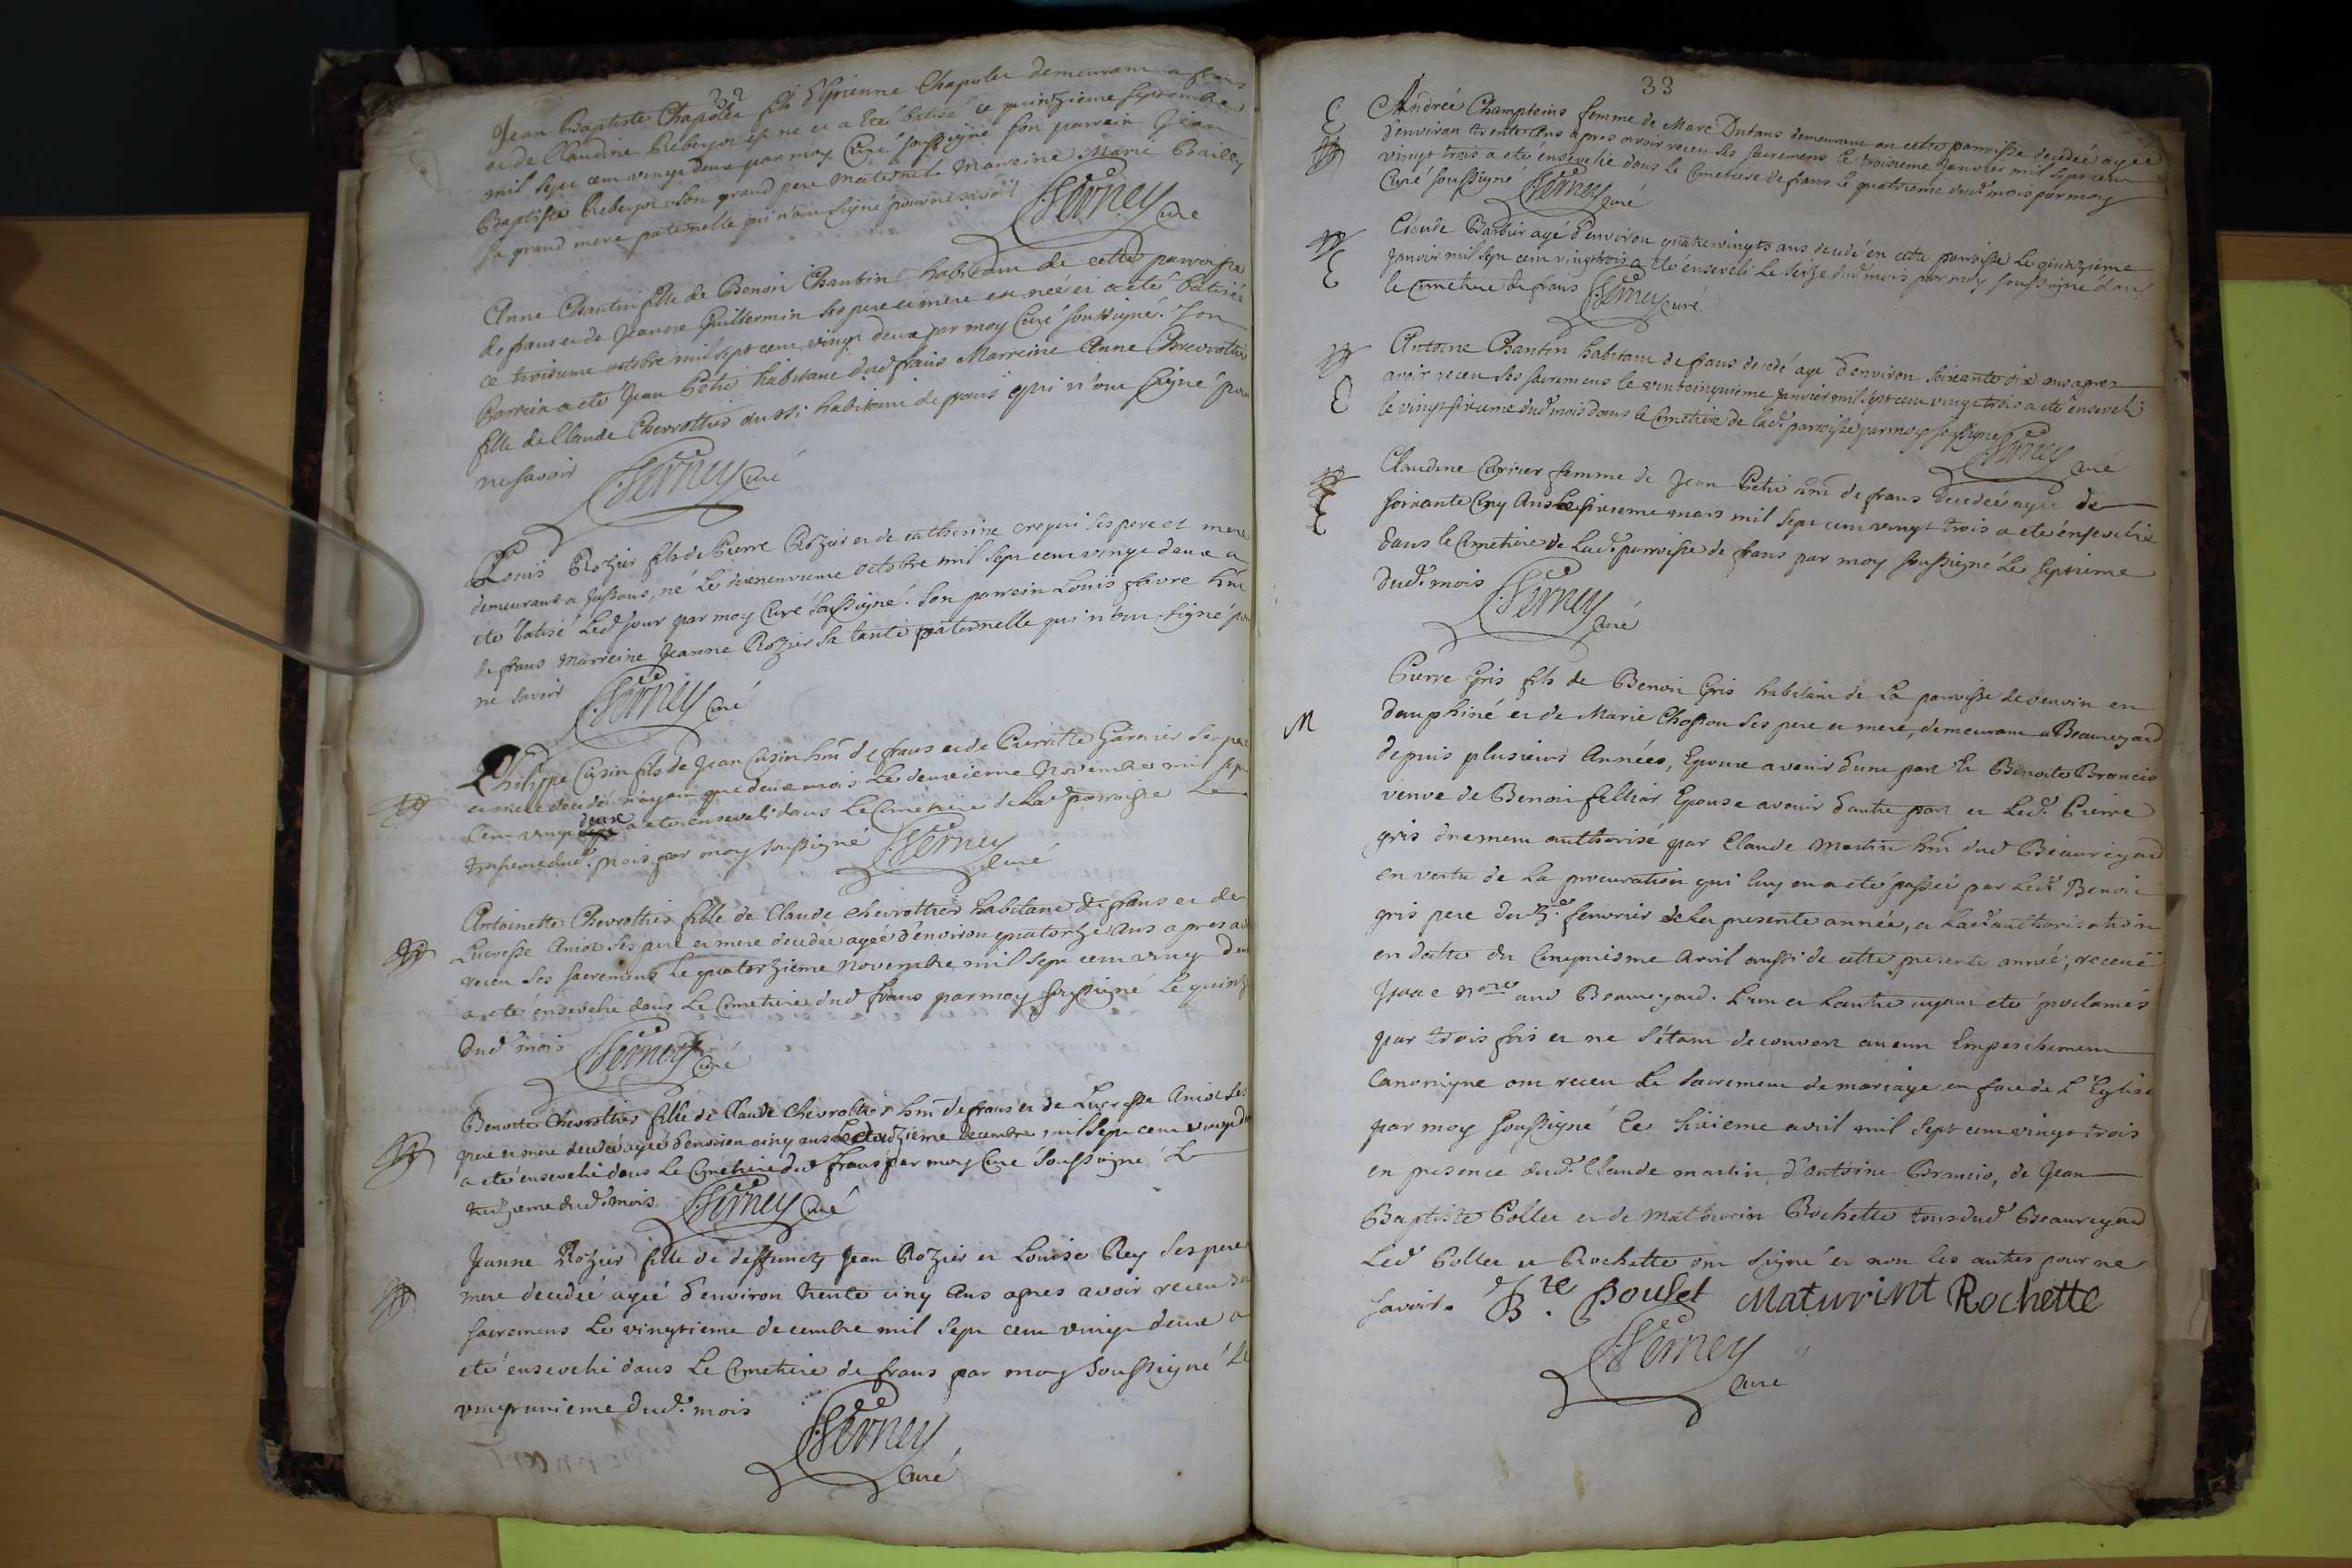 Jean Baptiste Chapolet fils d'Etienne Chapolet demeurant a frans
et de Claudine est ne et a été batisé ce quinzieme septembre
mil sept cent vingt deux par moy Curé soussigné son parrein Jean
Baptiste son grand pere maternel Marreine Marie Bailly
sa grand mere paternelle qui n'ont signé pour ne savoir
Ferney Curé
Anne Chantin fille de Benoit Chantin habitant de cette parroisse
de frans et de Jeanne Guillermin ses pere et mere est née et a eté batisée
ce troisieme octobre mil sept cent vingt deux par moy Curé soussigné. Son
Parrein a eté Jean Petit habitant dud frans Marreine Anne Chevrottier
fille de Claude Chevrottier aussi habitant de frans qui n'ont signé pour
ne savoir Ferney Curé
Louis Rozier fils de Pierre Rozier et de catherine crequi ses pere et mere
demeurants a Jassans, né le dixneuvieme octobre mil sept cent vingt deux a
eté batisé led jour par moy Curé soussigné. Son parrein Louis favre hnt
de frans Marreine Jeanne Rozier sa tante paternelle qui n'ont signé pour
ne savoir Ferney Curé
Philippe Cusin fils de Jean Cusin hnt de frans et de Pierrette Garnier ses pere
et mere decedé n'ayant que deux mois le deuxieme Novembre mil sept
cent vingt deux a eté enseveli dans le Cimetiere de lad parroisse le
troisieme dud. mois par moy soussigné Ferney Curé
Antoinette Chevrottier fille de Claude chevrottier habitant de frans et de
Lucresse Amiot ses pere et mere decedée agée d'environ quatorze ans apres avoir
receu ses sacremens le quatorzieme novembre mil sept cent vingt deux
a eté ensevelie dans le Cimetiere dud frans par moy soussigné le quinze
dud. mois Ferney Curé
Benoite Chevrottier fille de Claude Chevrottier hnt de frans et de Lucresse Amiot ses
pere et mere decedée agée d'environ cinq ans le douzieme decembre mil sept cent vingt deux
a eté ensevelie dans le Cimetiere dud frans par moy Curé soussigné le
treizieme dud. mois Ferney Curé
Jeanne Rozier fille de deffuncts Jean Rozier et Louise Rey ses pere
mere decedée agée d'environ trente cinq ans apres avoir receu ses
sacremens le vingtieme decembre mil sept cent vingt deux a
eté ensevelie dans le Cimetiere de frans par moy soussigné le
vingt unieme dud. mois
Ferney
Curé
33
Andrée Champteins femme de Marc Dutans demeurant en cette parroisse decedée agée
d'environ trente ans apres avoir receu ses sacremens le troisieme Janvier mil sept cent
vingt trois a eté ensevelie dans le Cimetiere de frans le quatrieme dud. mois par moy
Curé soussigné Ferney Curé
Claude Barbier agé d'environ quatrevingts ans decedé en cette parroisse le quinzieme
Janvier mil sept cent vingt trois a eté enseveli le seize dud. mois par moy soussigné dans
le cimetiere de frans Ferney Curé
Antoine Chantin habitant de frans decedé agé d'environ soixante dix ans apres
avoir receu ses sacremens le vint cinquieme Janvier mil sept cent vingt trois a eté enseveli
le vingt sixieme dud. mois dans le Cimetiere de lad. parroisse par moy soussigné Ferney Curé
Claudine Carrier femme de Jean Petit hnt de frans decedée agée de
soixante cinq ans le sixieme mars mil sept cent vingt trois a eté ensevelie
dans le Cimetiere de lad. parroisse de frans par moy soussigné le septieme
dud. mois Ferney Curé
Pierre Gris fils de Benoit Gris habitant de la parroisse de en
M dauphiné et de Marie Chosson ses pere et mere, demeurant a Beauregard
depuis plusieurs Années, Epoux avenir d'une part Et Benoite Brancio
veuve de Benoit Epouse avenir d'autre part et led. Pierre
gris authorisé par Claude Martin hnt dud Beauregard
en vertu de la procuration qui luy en a eté passée par led. Benoit
gris pere du fevrier de la presente année, et lad authorisation
en datte du cinquiesme Avril aussi de cette presente année, receue
nore aud Beauregard. L'un et l'autre ayant eté proclamés
par trois fois et ne s'étant decouvert aucun Empeschement
Canonique ont receu le sacrement de mariage en face de L'Eglise
par moy soussigné le sixieme avril mil sept cent vingt trois
en presence dud. Claude martin, d'antoine Brancio, de Jean
Baptiste Pollet et de Mathurin Rochette tous dud Beauregard
Led Pollet et Rochette ont signé et non les autres pour ne
savoir. J Bte poulet Maturint Rochette
Ferney
Curé